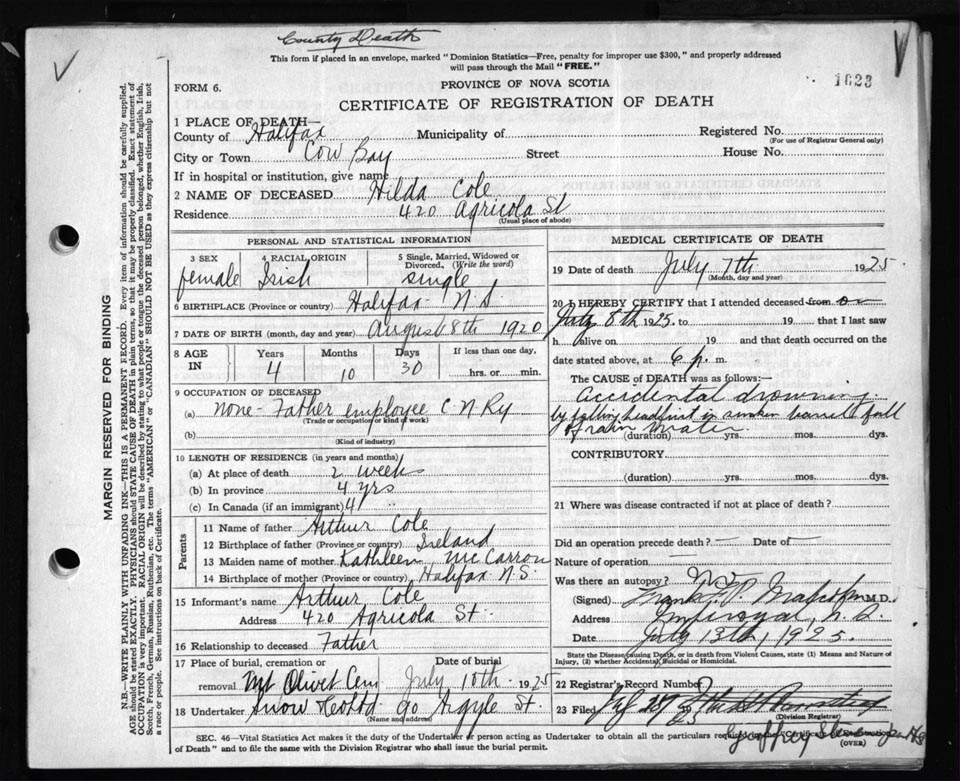 County Death
This form if placed in an envelope, marked "Dominion Statistics—Free, penalty for improper use $300," and properly addressed
will pass through the Mail "FREE."
FORM 6.
PROVINCE OF NOVA SCOTIA
1623
CERTIFICATE OF REGISTRATION OF DEATH
1 PLACE OF DEATH—
County of Halifax Municipality of Registered No.
(For use of Registrar General only)
City or Town Cow Bay Street House No.
If in hospital or institution, give name
2 NAME OF DECEASED Hilda Cole
Residence 420 Agricola St
(Usual place of abode)
PERSONAL AND STATISTICAL INFORMATION
3 SEX 4 RACIAL ORIGIN 5 Single, Married, Widowed or
Divorced, (Write the word)
female Irish single
6 BIRTHPLACE (Province or country) Halifax N.S.
7 DATE OF BIRTH (month, day and year) August 8th 1920
8 AGE IN Years Months Days If less than one day,
4 10 30 hrs. or min.
9 OCCUPATION OF DECEASED
(a) none - Father employee C N Ry
(Trade or occupation or kind of work)
(b)
(Kind of industry)
10 LENGTH OF RESIDENCE (in years and months)
(a) At place of death 2 weeks
(b) In province 4 yrs
(c) In Canada (if an immigrant) 4 "
Parents
11 Name of father Arthur Cole
12 Birthplace of father (Province or country) Ireland
13 Maiden name of mother Kathleen McCarron
14 Birthplace of mother (Province or country) Halifax N.S.
15 Informant's name Arthur Cole
Address 420 Agricola St.
16 Relationship to deceased Father
17 Place of burial, cremation or Date of burial
removal Mt Olivet Cem July 10th 1925
18 Undertaker Snow & Co Ltd 90 Argyle St.
(Name and address)
MEDICAL CERTIFICATE OF DEATH
19 Date of death July 7th 1925
(Month, day and year)
20 I HEREBY CERTIFY that I attended deceased from on
July 8th 1925 to 19 that I last saw
h alive on 19 and that death occurred on the
date stated above, at 6 p. m.
The CAUSE of DEATH was as follows:—
Accidental drowning
by falling headfirst in sunken barrel full
of rain water.
(duration) yrs. mos. dys.
CONTRIBUTORY
(duration) yrs. mos. dys.
21 Where was disease contracted if not at place of death?
Did an operation precede death? — Date of —
Nature of operation —
Was there an autopsy? No
(Signed) Frank M.D.
Address N.S.
Date July 13th, 1925.
State the Disease causing Death, or in death from Violent Causes, state (1) Means and Nature of
Injury, (2) whether Accidental, Suicidal or Homicidal.
22 Registrar's Record Number
23 Filed 19 25
(Division Registrar)
SEC. 46—Vital Statistics Act makes it the duty of the Undertaker or person acting as Undertaker to obtain all the particulars required
of Death" and to file the same with the Division Registrar who shall issue the burial permit.
(OVER)
MARGIN RESERVED FOR BINDING
N.B.—WRITE PLAINLY WITH UNFADING INK—THIS IS A PERMANENT RECORD. Every item of information should be carefully supplied.
AGE should be stated EXACTLY. PHYSICIANS should STATE CAUSE OF DEATH in plain terms, so that it may be properly classified. Exact statement of
OCCUPATION is very important. RACIAL ORIGIN will be described by stating to what people or tongue the deceased person belonged, whether English, Irish,
Scotch, French, German, Russian, Ruthenian, etc. The terms "AMERICAN" or "CANADIAN" SHOULD NOT BE USED as they express citizenship but not
a race or people. See instructions on back of Certificate.